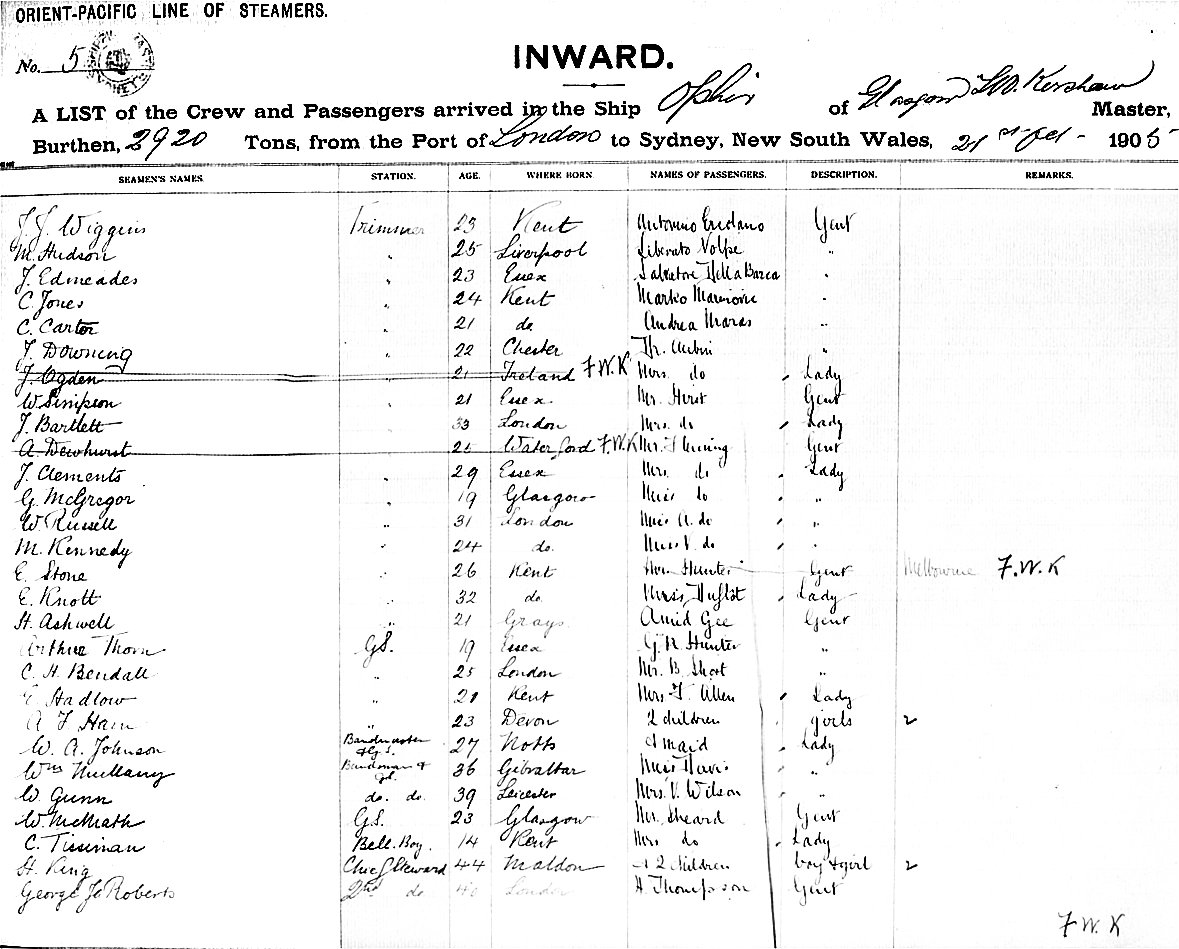 ORIENT-PACIFIC LINE OF STEAMERS.
No. 5
INWARD.
A LIST of the Crew and Passengers arrived in the Ship Ophir of Glasgow Kershaw Master,
Burthen, 2920 Tons, from the Port of London to Sydney, New South Wales, 21st Feb 1905
SEAMEN'S NAMES. STATION. AGE. WHERE BORN. NAMES OF PASSENGERS. DESCRIPTION. REMARKS.
J. J. Wiggins Trimmer 23 Kent Antonino Gent
M. Hudson " 25 Liverpool Liberato Volpe "
J. Edmeades " 23 Essex Salvatore Della Barca "
C. Jones " 24 Kent Marko "
C. Carter " 21 do Andrea Maras "
J. Downing " 22 Chester "
J. Ogden " 21 Ireland F.W.K Mrs. do Lady
W. Simpson " 21 Essex Mr. Hirst Gent
J. Bartlett " 33 London Mrs. do Lady
A. Dewhurst " 25 Waterford F.W.K Mr. Gent
J. Clements " 29 Essex Mrs. do Lady
G. McGregor " 19 Glasgow Miss do "
W. Russell " 31 London Miss A. do "
M. Kennedy " 24 do. Miss V. do "
E. Stone " 26 Kent Hunter Gent Melbourne F.W.K
E. Knott " 32 do Lady
H. Ashwell " 21 Grays Gee Gent
Arthur Thorn G.S. 19 Essex G. R. Hunter "
C. H. Bendall " 25 London Mr. B. Short "
E. Hadlow " 21 Kent Mrs. Allen Lady
A F Ham " 23 Devon 2 children girls 2
W. A. Johnson Bandmaster & G.S. 27 Notts & maid Lady
Wm Mullany Bandsman & 36 Gibraltar Miss Davis "
W. Gunn do. do. 39 Leicester Mrs. V. Wilson "
W. McMath G.S. 23 Glasgow Mr. Sheard Gent
C. Tissiman Bell Boy. 14 Kent Mrs do Lady
H. King Chief Steward 44 Maldon 2 children boy & girl 2
George Roberts 2nd do 40 London H. Thompson Gent
F W K